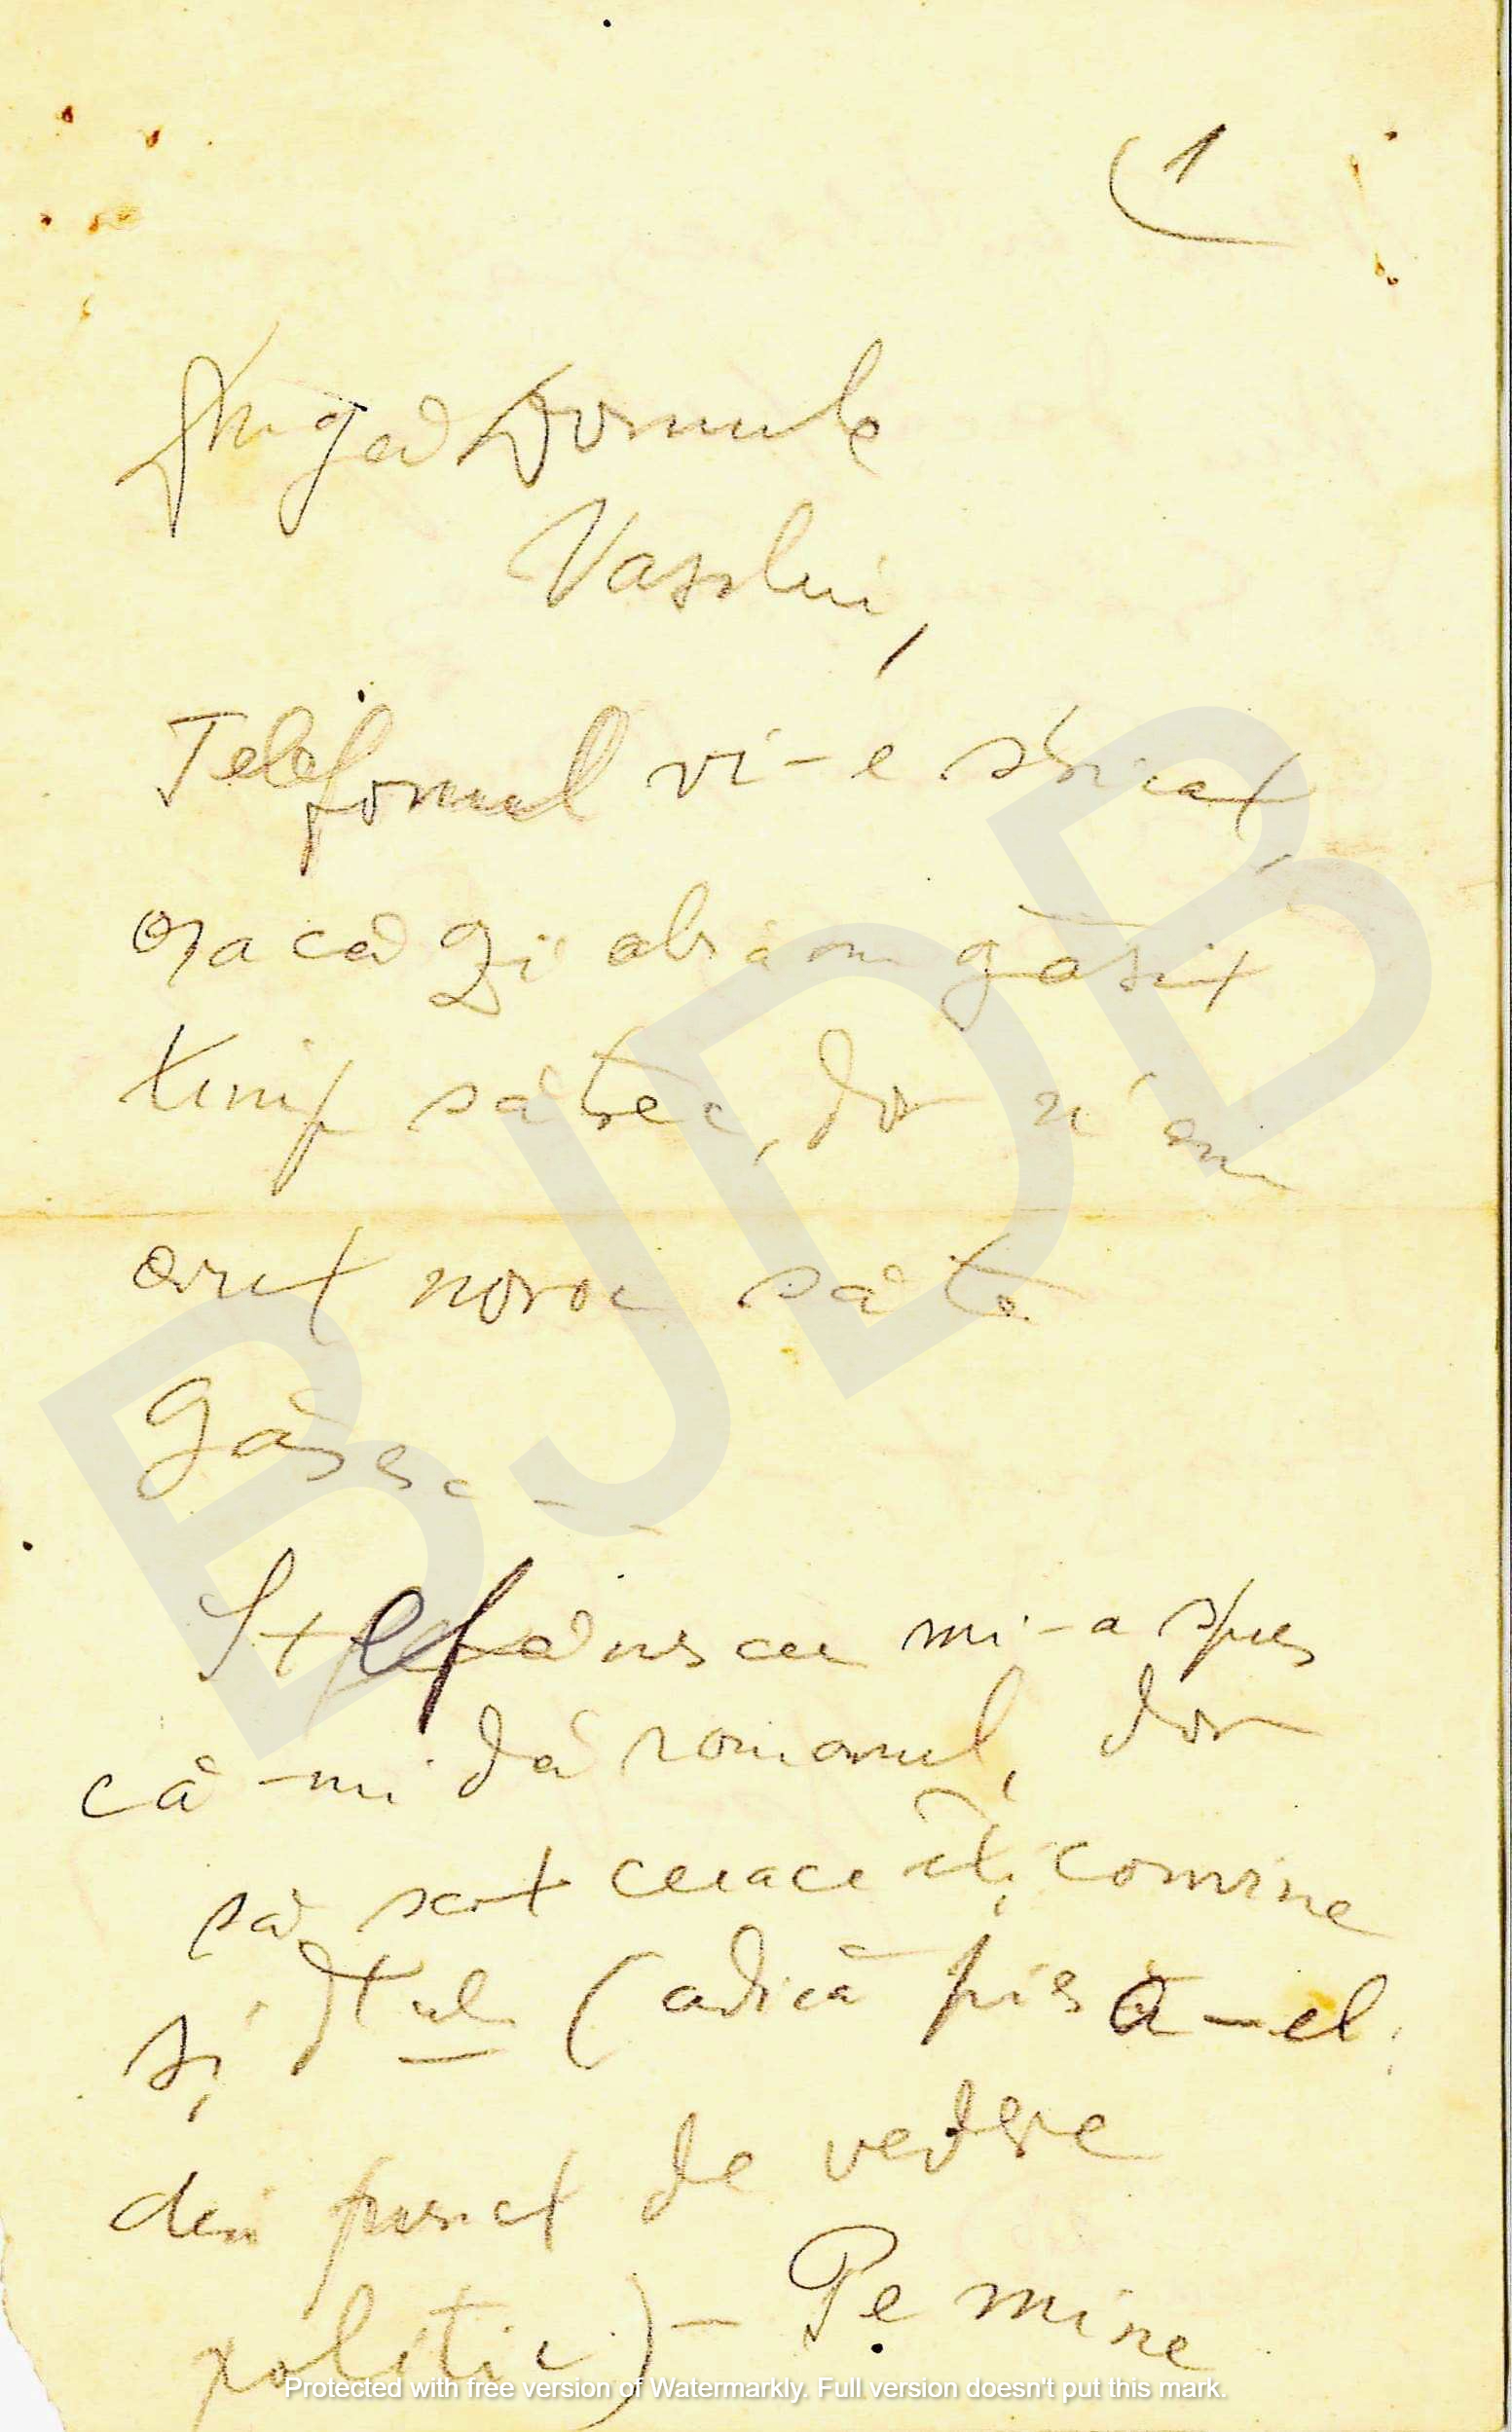 1
Dragă Domnule
Vaslui,
Telefonul vi-e stricat,
așa că zi abia am găsit
timp să trec, dar n'am
avut noroc să te
găsesc –
Ștefănescu mi-a spus
că-mi dă romanul, dar
să scot ceeace îți convine
și (adică pisă-el,
din punct de vedere
politic) – Pe mine
BJDB
Protected with free version of Watermarkly. Full version doesn't put this mark.